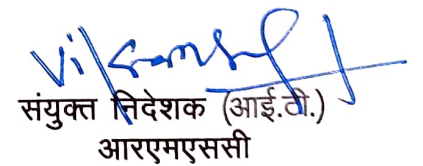 संयुक्त निदेशक (आई.टी.)
आरएमएससी